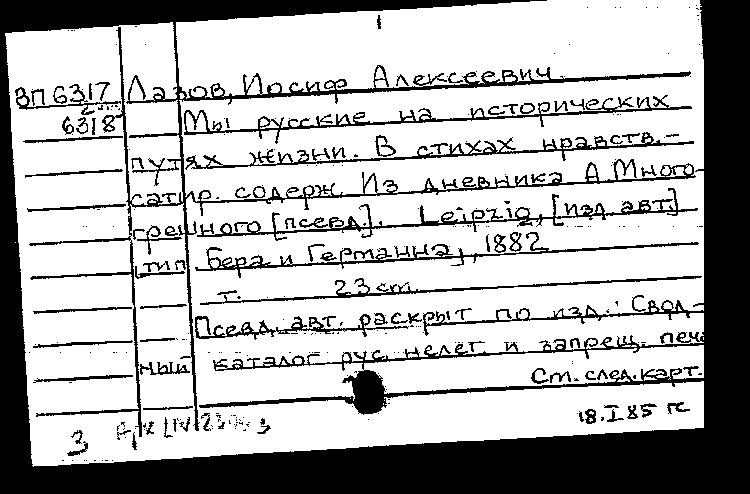 ВП6317 Лазов, Иосиф Алексеевич.
6318 Мы русские на исторических
путях жизни. В стихах нравств.-
сатир. содерж. Из дневника А. Много-
грешного [псевд.]. Leipzig, [изд. авт.]
[тип. Бера и Германна], 1882
т. 23 cm.
Псевд. авт. раскрыт по изд.: Свод-
ный каталог рус. нелег. и запрещ. печа
См. след. карт.
18.I.85 гс
3